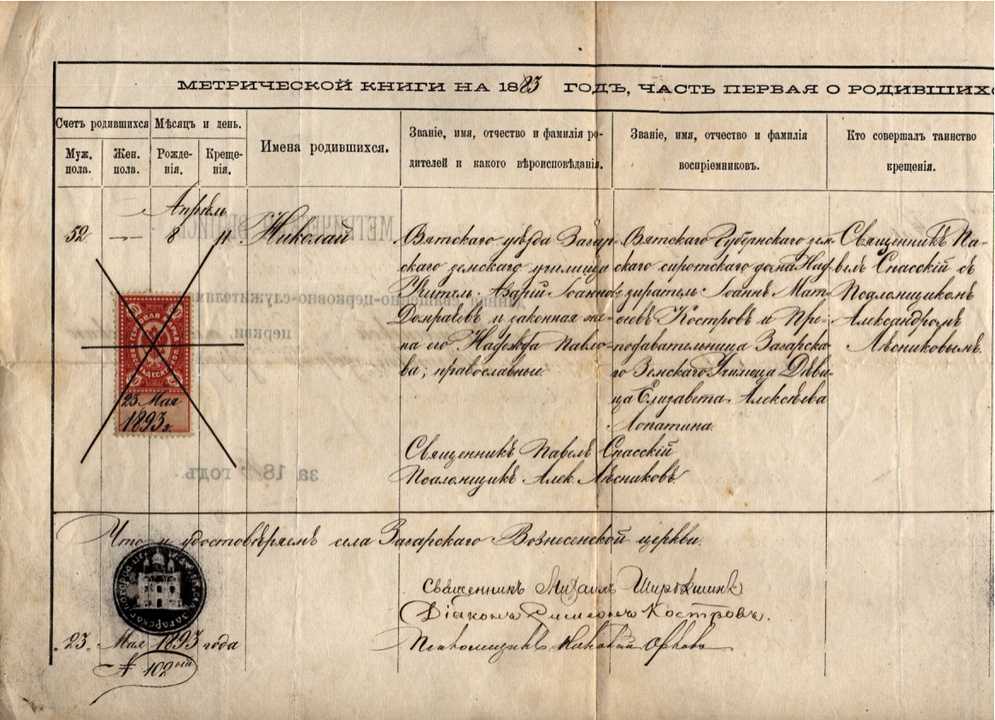 МЕТРИЧЕСКОЙ КНИГИ НА 1883 ГОДЪ, ЧАСТЬ ПЕРВАЯ О РОДИВШИХС
Счетъ родившихся
Муж. пола.
Жен. пола.
Мѣсяцъ и день.
Рожде-
нія.
Креще-
нія.
Имена родившихся.
Званіе, имя, отчество и фамилія ро-
дителей и какого вѣроисповѣданія.
Званіе, имя, отчество и фамилія
воспріемниковъ.
Кто совершалъ таинство
крещенія.
Апрѣль
52
—
8
11
Николай
Вятскаго уѣзда Загар-
скаго земскаго училища
Учитель Азарій Іоанновъ
Домрачевъ и законная же-
на его Надежда Павло-
ва, православные
Вятскаго Губернскаго зем-
скаго сиротскаго дома Над-
зиратель Іоаннъ Мат-
ѳеевъ Костровъ и Пре-
подавательница Загарска-
го Земскаго Училища Дѣви-
ца Елизавета Алексѣева
Лопатина.
Священникъ Па-
велъ Спасскій съ
Псаломщикомъ
Александромъ
Лѣсниковымъ.
23 Мая
1893 г.
Священникъ Павелъ Спасскій
Псаломщикъ Алек. Лѣсниковъ.
за 18 годъ
Что и удостовѣряемъ села Загарскаго Вознесенской церкви
Священникъ Михаилъ
Діаконъ Костровъ.
Псаломщикъ Николай
23 Мая 1893 года
№ 102ой